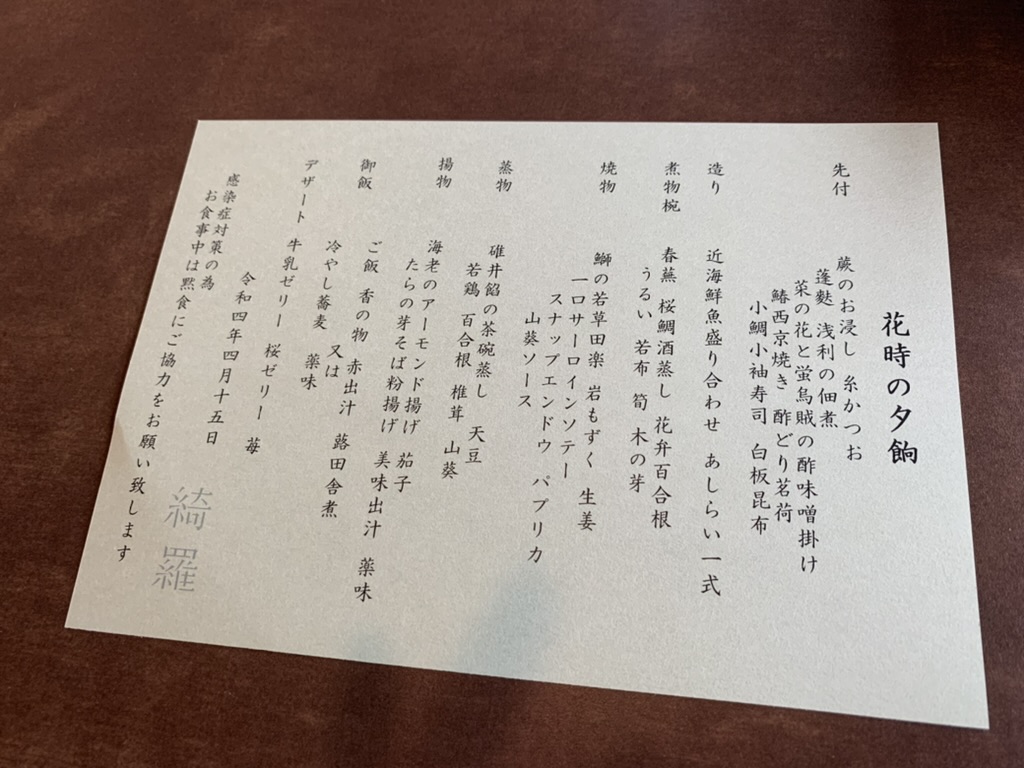 花時の夕餉
先付
蕨のお浸し 糸かつお
蓬麩 浅利の佃煮
菜の花と蛍烏賊の酢味噌掛け
鰆西京焼き 酢どり茗荷
小鯛小袖寿司 白板昆布
造り
近海鮮魚盛り合わせ あしらい一式
煮物椀
春蕪 桜鯛酒蒸し 花弁百合根
うるい 若布 筍 木の芽
焼物
鰤の若草田楽 岩もずく 生姜
一口サーロインソテー
スナップエンドウ パプリカ
山葵ソース
蒸物
碓井餡の茶碗蒸し 天豆
若鶏 百合根 椎茸 山葵
揚物
海老のアーモンド揚げ 茄子
たらの芽そば粉揚げ 美味出汁 薬味
御飯
ご飯 香の物 赤出汁 蕗田舎煮
冷やし蕎麦 又は 薬味
デザート
牛乳ゼリー 桜ゼリー 苺
令和四年四月十五日
感染症対策の為
お食事中は黙食にご協力をお願い致します
綺羅